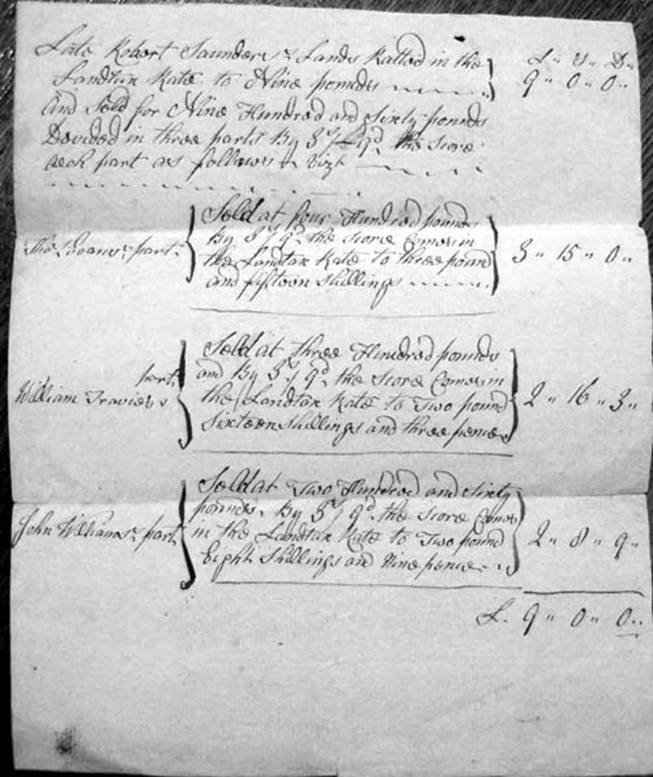 Late Robert Saunders's Lands Ratted in the L " S " D "
Landtax Rate to Nine pounds 9 " 0 " 0 "
And Sold for Nine Hundred and Sixty pounds
Devided in three parts By 3s/ 9d the Score
each part as follows Vizt
Sold at four Hundred pounds
By 3s/ 9d the Score Comes in
Thos Evans's part the Landtax Rate to three pound 3 " 15 " 0 "
and fifteen Shillings
Sold at three Hundred pounds
part and By 3s/ 9d the Score Comes in
William the Landtax Rate to Two pound 2 " 16 " 3 "
Sixteen Shillings and three pence
Sold at Two Hundred and Sixty
pounds By 3s/ 9d the Score Comes
John Williams's part in the Landtax Rate to Two pound 2 " 8 " 9 "
Eight Shillings and Nine pence
L. 9 " 0 " 0 "